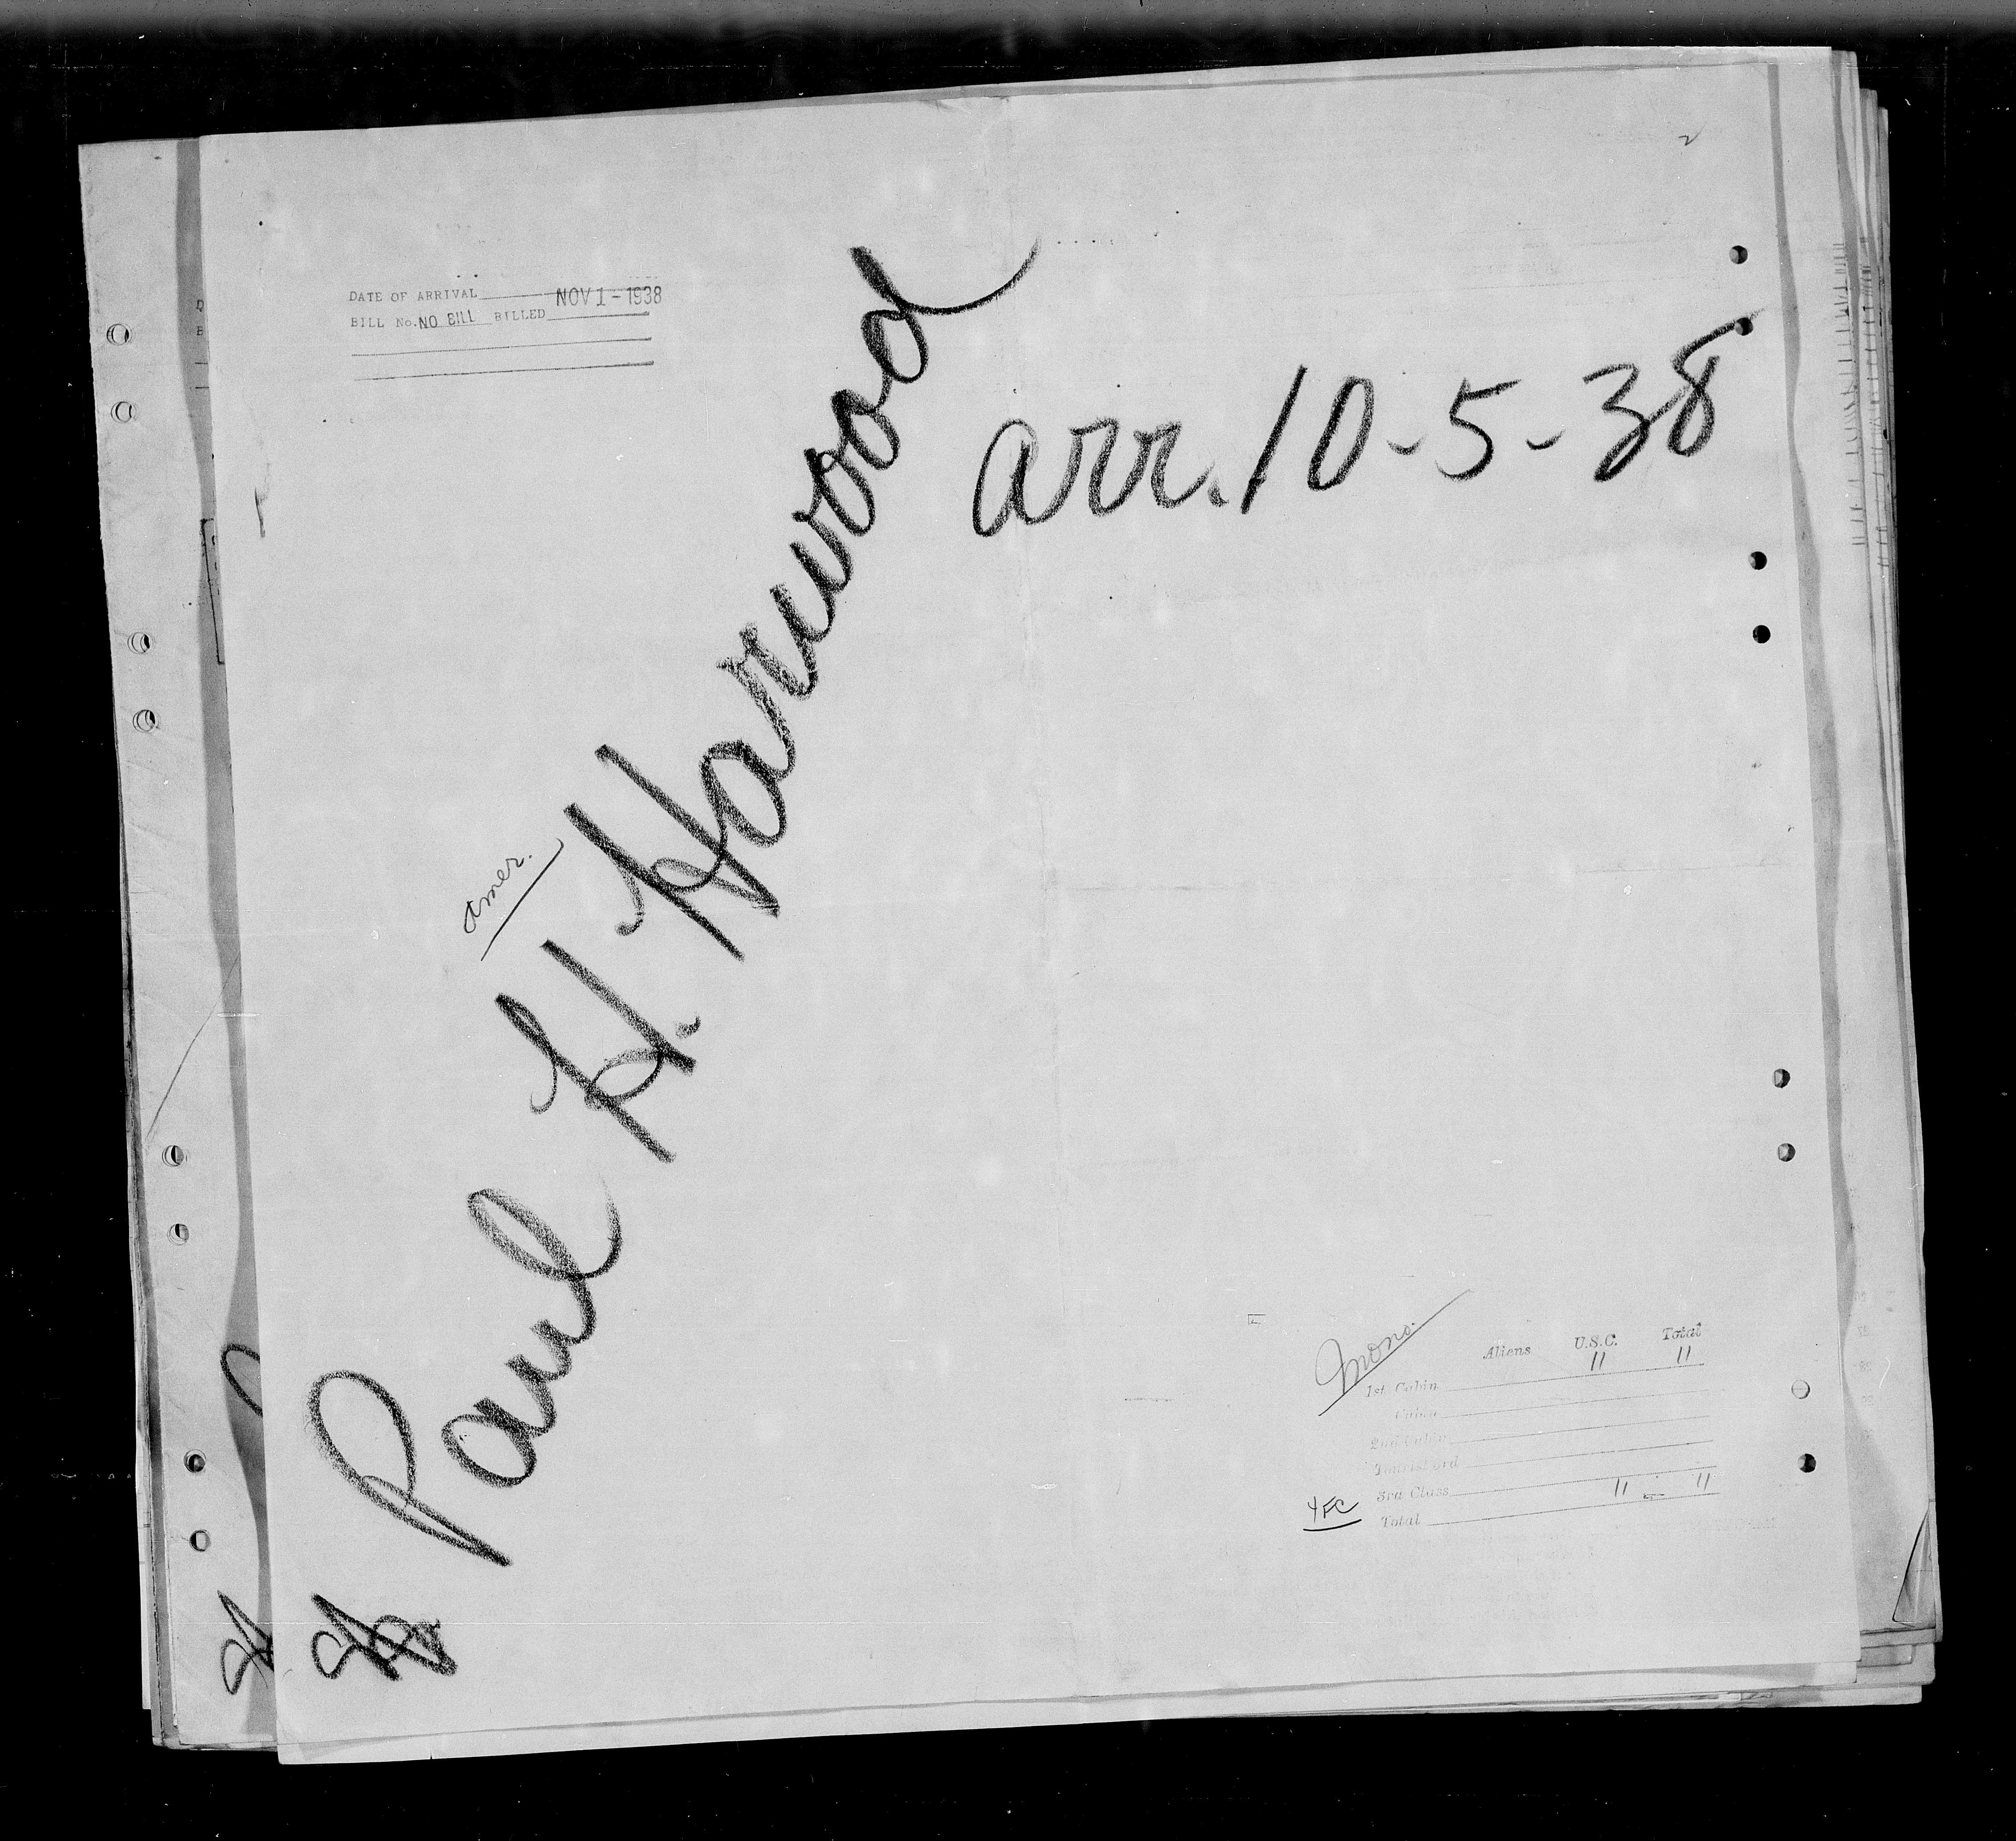 2
DATE OF ARRIVAL NOV 1 - 1938
BILL No. NO BILL BILLED
Paul H. Harwood
arr. 10-5-38
amer.
Mono.
Aliens U.S.C. Total
1st Cabin 11 11
Cabin
2nd Cabin
Tourist 3rd
3rd Class
4FC Total 11 - 11